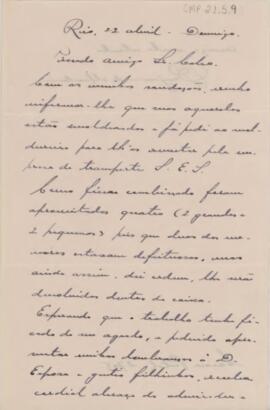 CMP 2.1.5.9
Rio, 22 abril - Domingo.
Prezado amigo Sr.
Com as minhas saudações, venho
informar-lhe que suas aquarelas
estão emolduradas e já pedi ao mol-
dureiro para lh'as remeter pela em-
presa de transporte S. E. S.
Como ficou combinado foram
aproveitados quatro (2 grandes e
2 pequenos) pois que duas das me-
nores estavam defeituosas, mas
ainda assim, dei ordem, lhe serão
devolvidas dentro da caixa.
Esperando que o trabalho tenha fi-
cado de seu agrado, e pedindo apre-
sentar minhas lembranças à D.
Esposa e gentis filhinhos, receba
cordial abraço do admirador